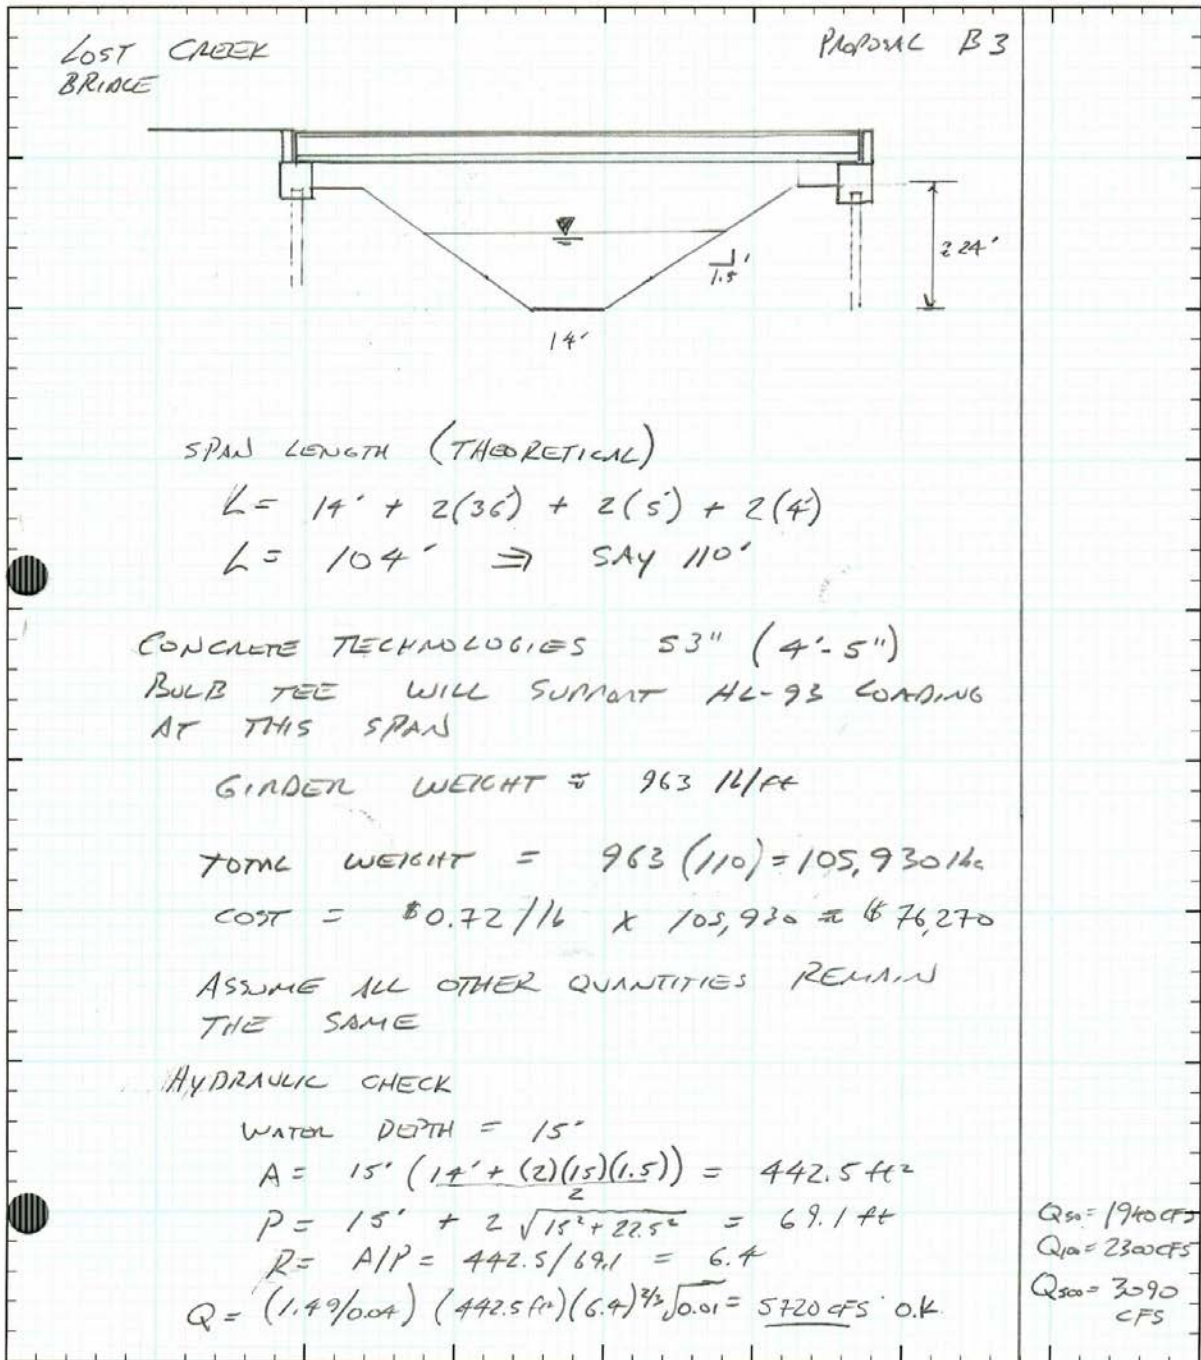 LOST CREEK
BRIDGE
PROPOSAL B3
≈ 24'
1
1.5
14'
SPAN LENGTH (THEORETICAL)
L = 14' + 2(36') + 2(5') + 2(4')
L = 104' ⇒ SAY 110'
CONCRETE TECHNOLOGIES 53" (4'-5")
BULB TEE WILL SUPPORT HL-93 LOADING
AT THIS SPAN
GIRDER WEIGHT ≈ 963 lb/ft
TOTAL WEIGHT = 963 (110) = 105,930 lbs
COST = $0.72/lb x 105,930 ≈ $76,270
ASSUME ALL OTHER QUANTITIES REMAIN
THE SAME
HYDRAULIC CHECK
WATER DEPTH = 15'
A = 15' (14' + (2)(15)(1.5))/2 = 442.5 ft²
P = 15' + 2 √15² + 22.5² = 69.1 ft
R = A/P = 442.5/69.1 = 6.4
Q = (1.49/0.04) (442.5 ft²)(6.4)^2/3 √0.01 = 5720 CFS O.K.
Q50 = 1940 CFS
Q100 = 2300 CFS
Q500 = 3090
CFS